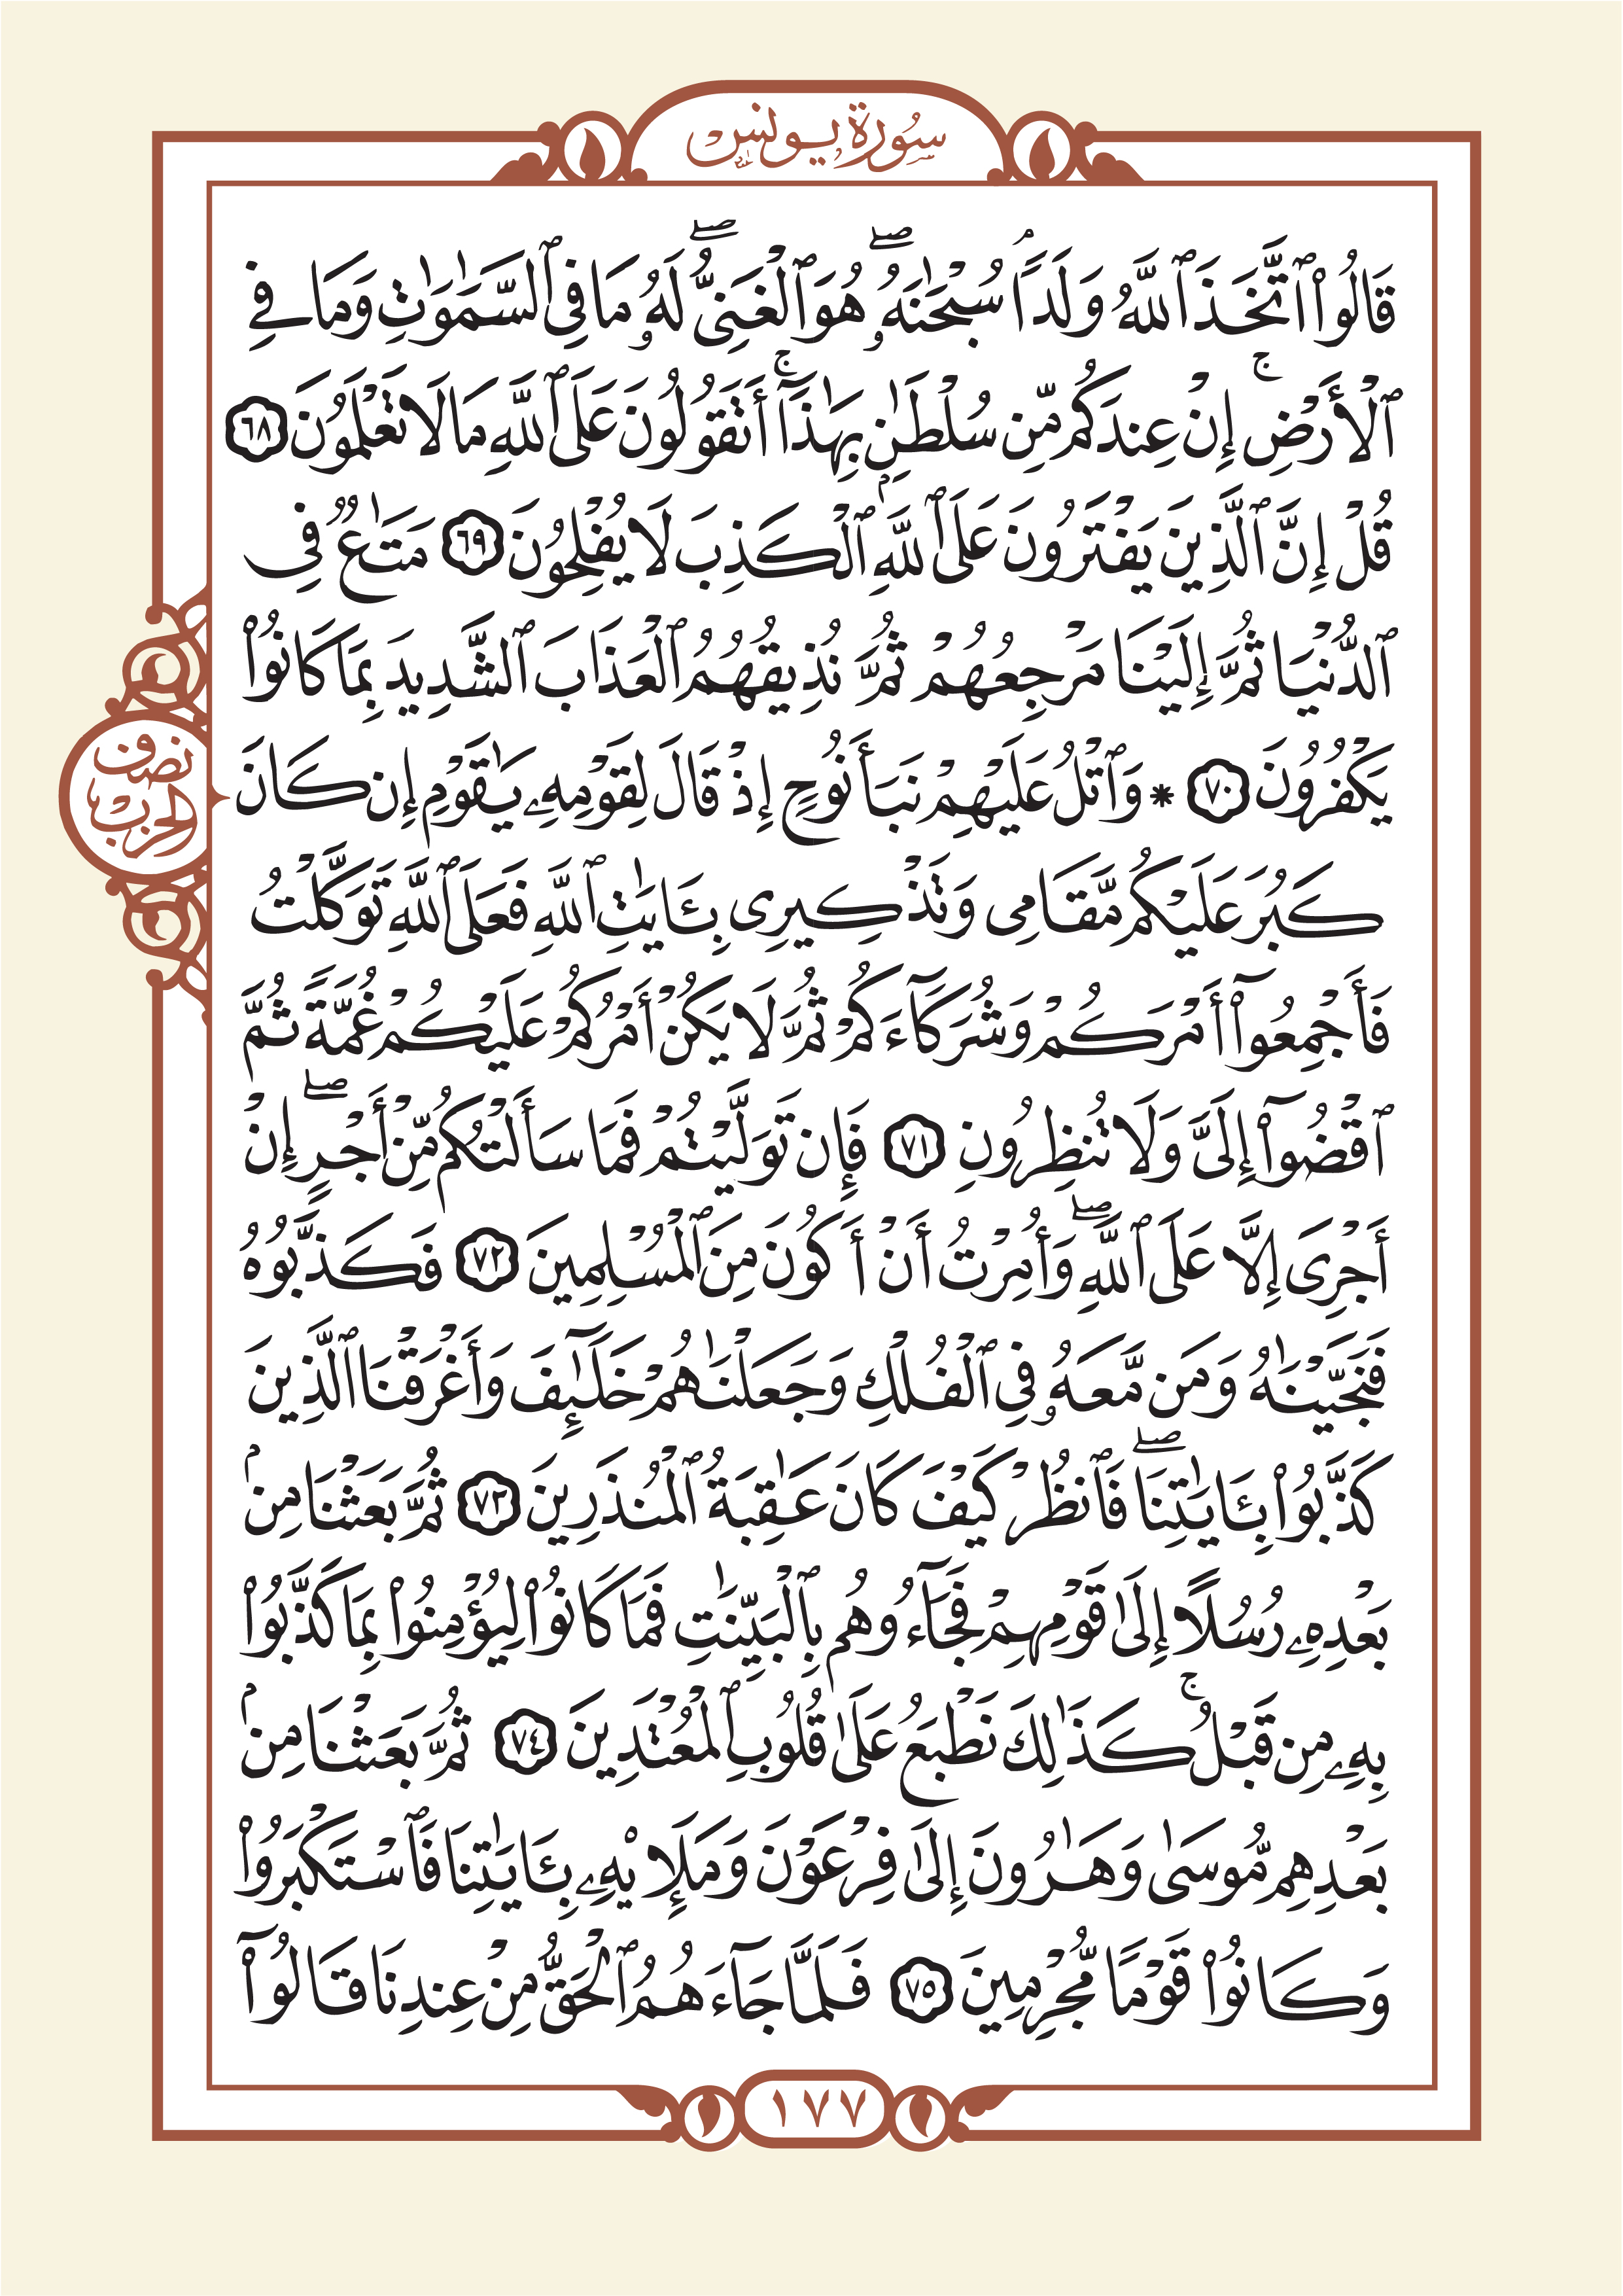 سُورَةُ يُونُسَ
قَالُوا۟ ٱتَّخَذَ ٱللَّهُ وَلَدًۭا ۗ سُبْحَـٰنَهُۥ ۖ هُوَ ٱلْغَنِىُّ ۖ لَهُۥ مَا فِى ٱلسَّمَـٰوَٰتِ وَمَا فِى
ٱلْأَرْضِ ۚ إِنْ عِندَكُم مِّن سُلْطَـٰنٍۭ بِهَـٰذَآ ۚ أَتَقُولُونَ عَلَى ٱللَّهِ مَا لَا تَعْلَمُونَ ٦٨
قُلْ إِنَّ ٱلَّذِينَ يَفْتَرُونَ عَلَى ٱللَّهِ ٱلْكَذِبَ لَا يُفْلِحُونَ ٦٩ مَتَـٰعٌۭ فِى
ٱلدُّنْيَا ثُمَّ إِلَيْنَا مَرْجِعُهُمْ ثُمَّ نُذِيقُهُمُ ٱلْعَذَابَ ٱلشَّدِيدَ بِمَا كَانُوا۟
يَكْفُرُونَ ٧٠ * وَٱتْلُ عَلَيْهِمْ نَبَأَ نُوحٍ إِذْ قَالَ لِقَوْمِهِۦ يَـٰقَوْمِ إِن كَانَ
نصف
الحزب
كَبُرَ عَلَيْكُم مَّقَامِى وَتَذْكِيرِى بِـَٔايَـٰتِ ٱللَّهِ فَعَلَى ٱللَّهِ تَوَكَّلْتُ
فَأَجْمِعُوٓا۟ أَمْرَكُمْ وَشُرَكَآءَكُمْ ثُمَّ لَا يَكُنْ أَمْرُكُمْ عَلَيْكُمْ غُمَّةًۭ ثُمَّ
ٱقْضُوٓا۟ إِلَىَّ وَلَا تُنظِرُونِ ٧١ فَإِن تَوَلَّيْتُمْ فَمَا سَأَلْتُكُم مِّنْ أَجْرٍ ۖ إِنْ
أَجْرِىَ إِلَّا عَلَى ٱللَّهِ ۖ وَأُمِرْتُ أَنْ أَكُونَ مِنَ ٱلْمُسْلِمِينَ ٧٢ فَكَذَّبُوهُ
فَنَجَّيْنَـٰهُ وَمَن مَّعَهُۥ فِى ٱلْفُلْكِ وَجَعَلْنَـٰهُمْ خَلَـٰٓئِفَ وَأَغْرَقْنَا ٱلَّذِينَ
كَذَّبُوا۟ بِـَٔايَـٰتِنَا ۖ فَٱنظُرْ كَيْفَ كَانَ عَـٰقِبَةُ ٱلْمُنذَرِينَ ٧٣ ثُمَّ بَعَثْنَا مِنۢ
بَعْدِهِۦ رُسُلًا إِلَىٰ قَوْمِهِمْ فَجَآءُوهُم بِٱلْبَيِّنَـٰتِ فَمَا كَانُوا۟ لِيُؤْمِنُوا۟ بِمَا كَذَّبُوا۟
بِهِۦ مِن قَبْلُ ۚ كَذَٰلِكَ نَطْبَعُ عَلَىٰ قُلُوبِ ٱلْمُعْتَدِينَ ٧٤ ثُمَّ بَعَثْنَا مِنۢ
بَعْدِهِم مُّوسَىٰ وَهَـٰرُونَ إِلَىٰ فِرْعَوْنَ وَمَلَإِي۟هِۦ بِـَٔايَـٰتِنَا فَٱسْتَكْبَرُوا۟
وَكَانُوا۟ قَوْمًۭا مُّجْرِمِينَ ٧٥ فَلَمَّا جَآءَهُمُ ٱلْحَقُّ مِنْ عِندِنَا قَالُوٓا۟
١٧٧